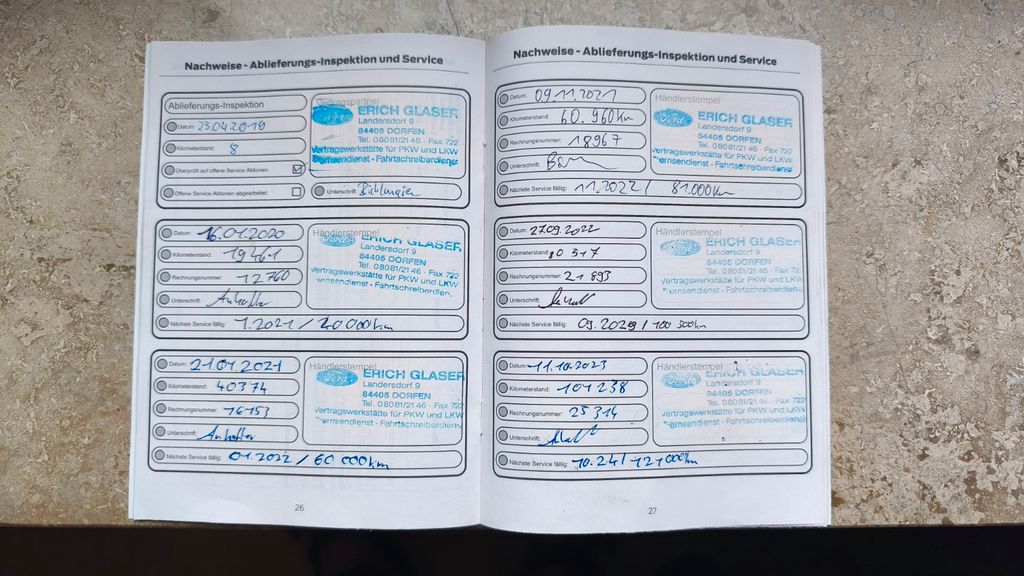 Nachweise - Ablieferungs-Inspektion und Service
Ablieferungs-Inspektion
Datum: 23.04.2019
Kilometerstand: 8
Überprüft auf offene Service Aktionen:
Offene Service Aktionen abgearbeitet:
Vertragspartner
ERICH GLASER
Landersdorf 9
84405 DORFEN
Tel. 08081/21 46 - Fax 722
Vertragswerkstätte für PKW und LKW
Fernsendienst - Fahrtschreiberdienst
Unterschrift:
Datum: 16.01.2020
Kilometerstand: 19461
Rechnungsnummer: 12760
Unterschrift:
Nächste Service fällig: 1.2021 / 40 000km
Händlerstempel
Ford
ERICH GLASER
Landersdorf 9
84405 DORFEN
Tel. 08081/21 46 - Fax 722
Vertragswerkstätte für PKW und LKW
Fahrtschreiberdien
Datum: 21.01.2021
Kilometerstand: 40374
Rechnungsnummer: 16153
Unterschrift:
Nächste Service fällig: 01.2022 / 60 000km
Händlerstempel
Ford
ERICH GLASER
Landersdorf 9
84405 DORFEN
Tel. 08081/21 46 - Fax 722
Vertragswerkstätte für PKW und LKW
Fahrtschreiberdien
26
Nachweise - Ablieferungs-Inspektion und Service
Datum: 09.11.2021
Kilometerstand: 60.960km
Rechnungsnummer: 18967
Unterschrift:
Nächste Service fällig: 11.2022 / 81.000km
Händlerstempel
Ford
ERICH GLASER
Landersdorf 9
84405 DORFEN
Tel. 08081/21 46 - Fax 722
Vertragswerkstätte für PKW und LKW
Fahrtschreiberdienst
Datum: 27.09.2022
Kilometerstand:
Rechnungsnummer: 21893
Unterschrift:
Nächste Service fällig: 100 500km
Händlerstempel
Ford
ERICH GLASER
Landersdorf 9
84405 DORFEN
Tel. 08081/21 46 - Fax 722
Vertragswerkstätte für PKW und LKW
Fahrtschreiberdienst
Datum: 11.10.2023
Kilometerstand: 101238
Rechnungsnummer: 25314
Unterschrift:
Nächste Service fällig: 10.24 / 121000km
Händlerstempel
ERICH GLASER
Landersdorf 9
84405 DORFEN
Tel. 08081/21 46 - Fax 722
Vertragswerkstätte für PKW und LKW
Fahrtschreiberdienst
27